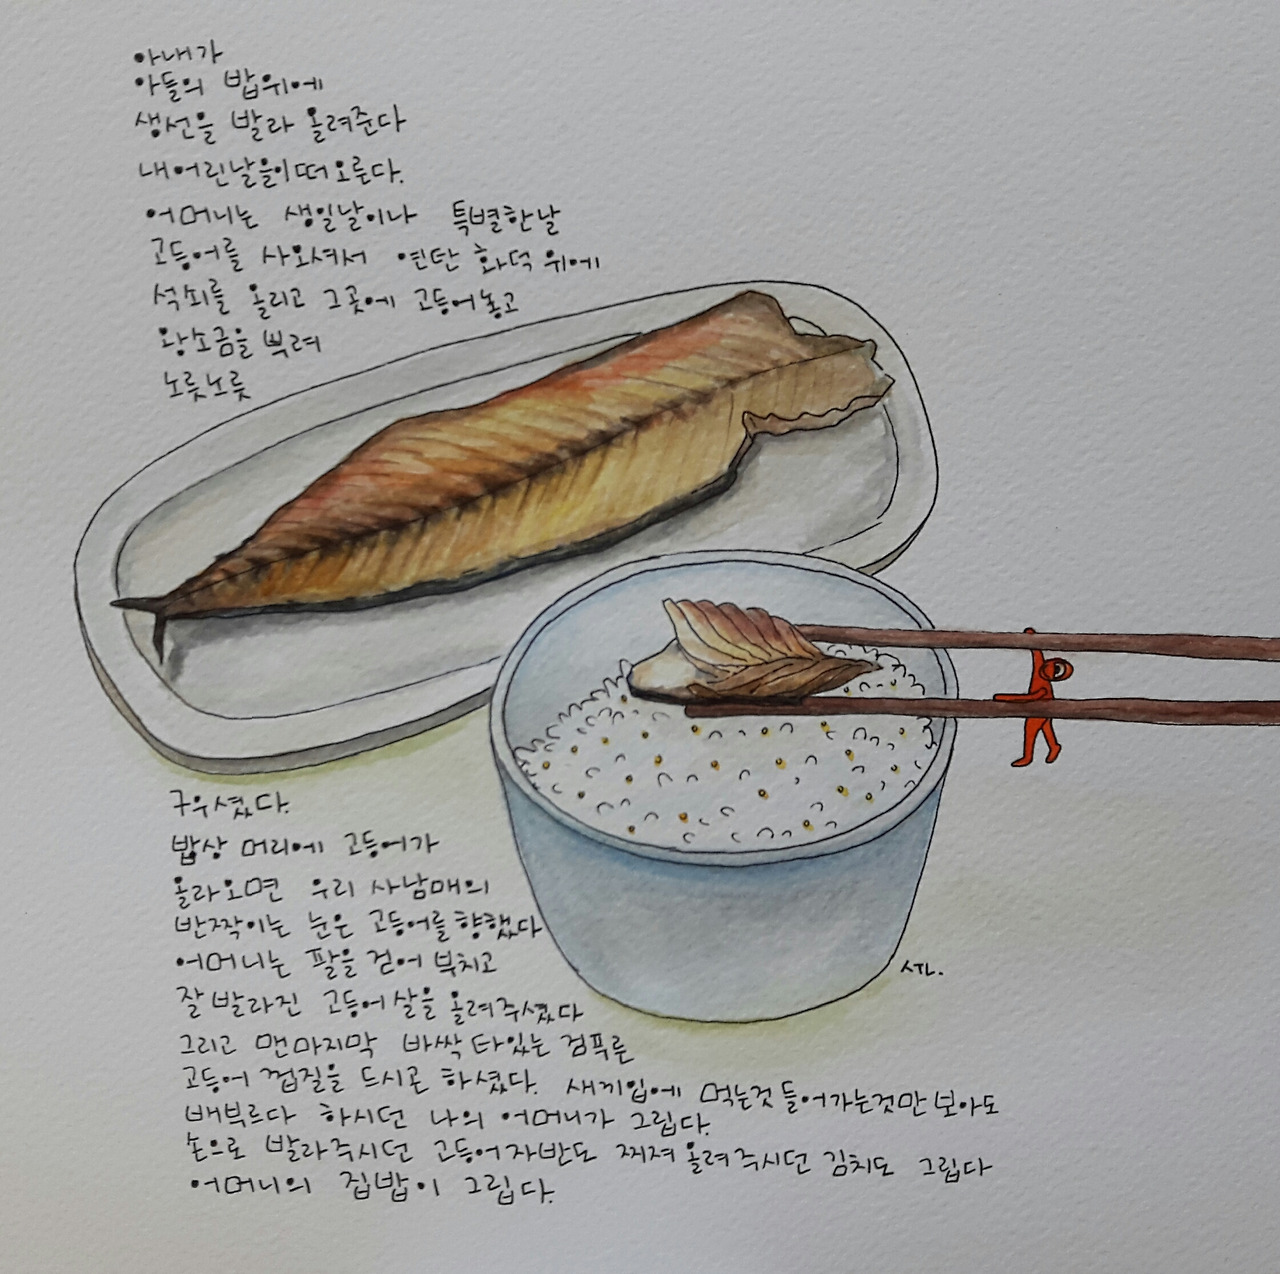 아내가
아들의 밥위에
생선을 발라 올려준다
내어린날을이떠오른다.
어머니는 생일날이나 특별한날
고등어를 사오셔서 연탄 화덕 위에
석쇠를 올리고 그곳에 고등어놓고
왕소금을 뿌려
노릇노릇
구우셨다.
밥상 머리에 고등어가
올라오면 우리 사남매의
반짝이는 눈은 고등어를 향했다
어머니는 팔을 걷어 부치고
잘 발라진 고등어살을 올려주셨다
그리고 맨마지막 바싹 타있는 검푸른
고등어 껍질을 드시곤 하셨다. 새끼입에 먹는것 들어가는것만 보아도
배부르다 하시던 나의 어머니가 그립다.
손으로 발라주시던 고등어자반도 찌져 올려주시던 김치도 그립다
어머니의 집밥이 그립다.
STL.